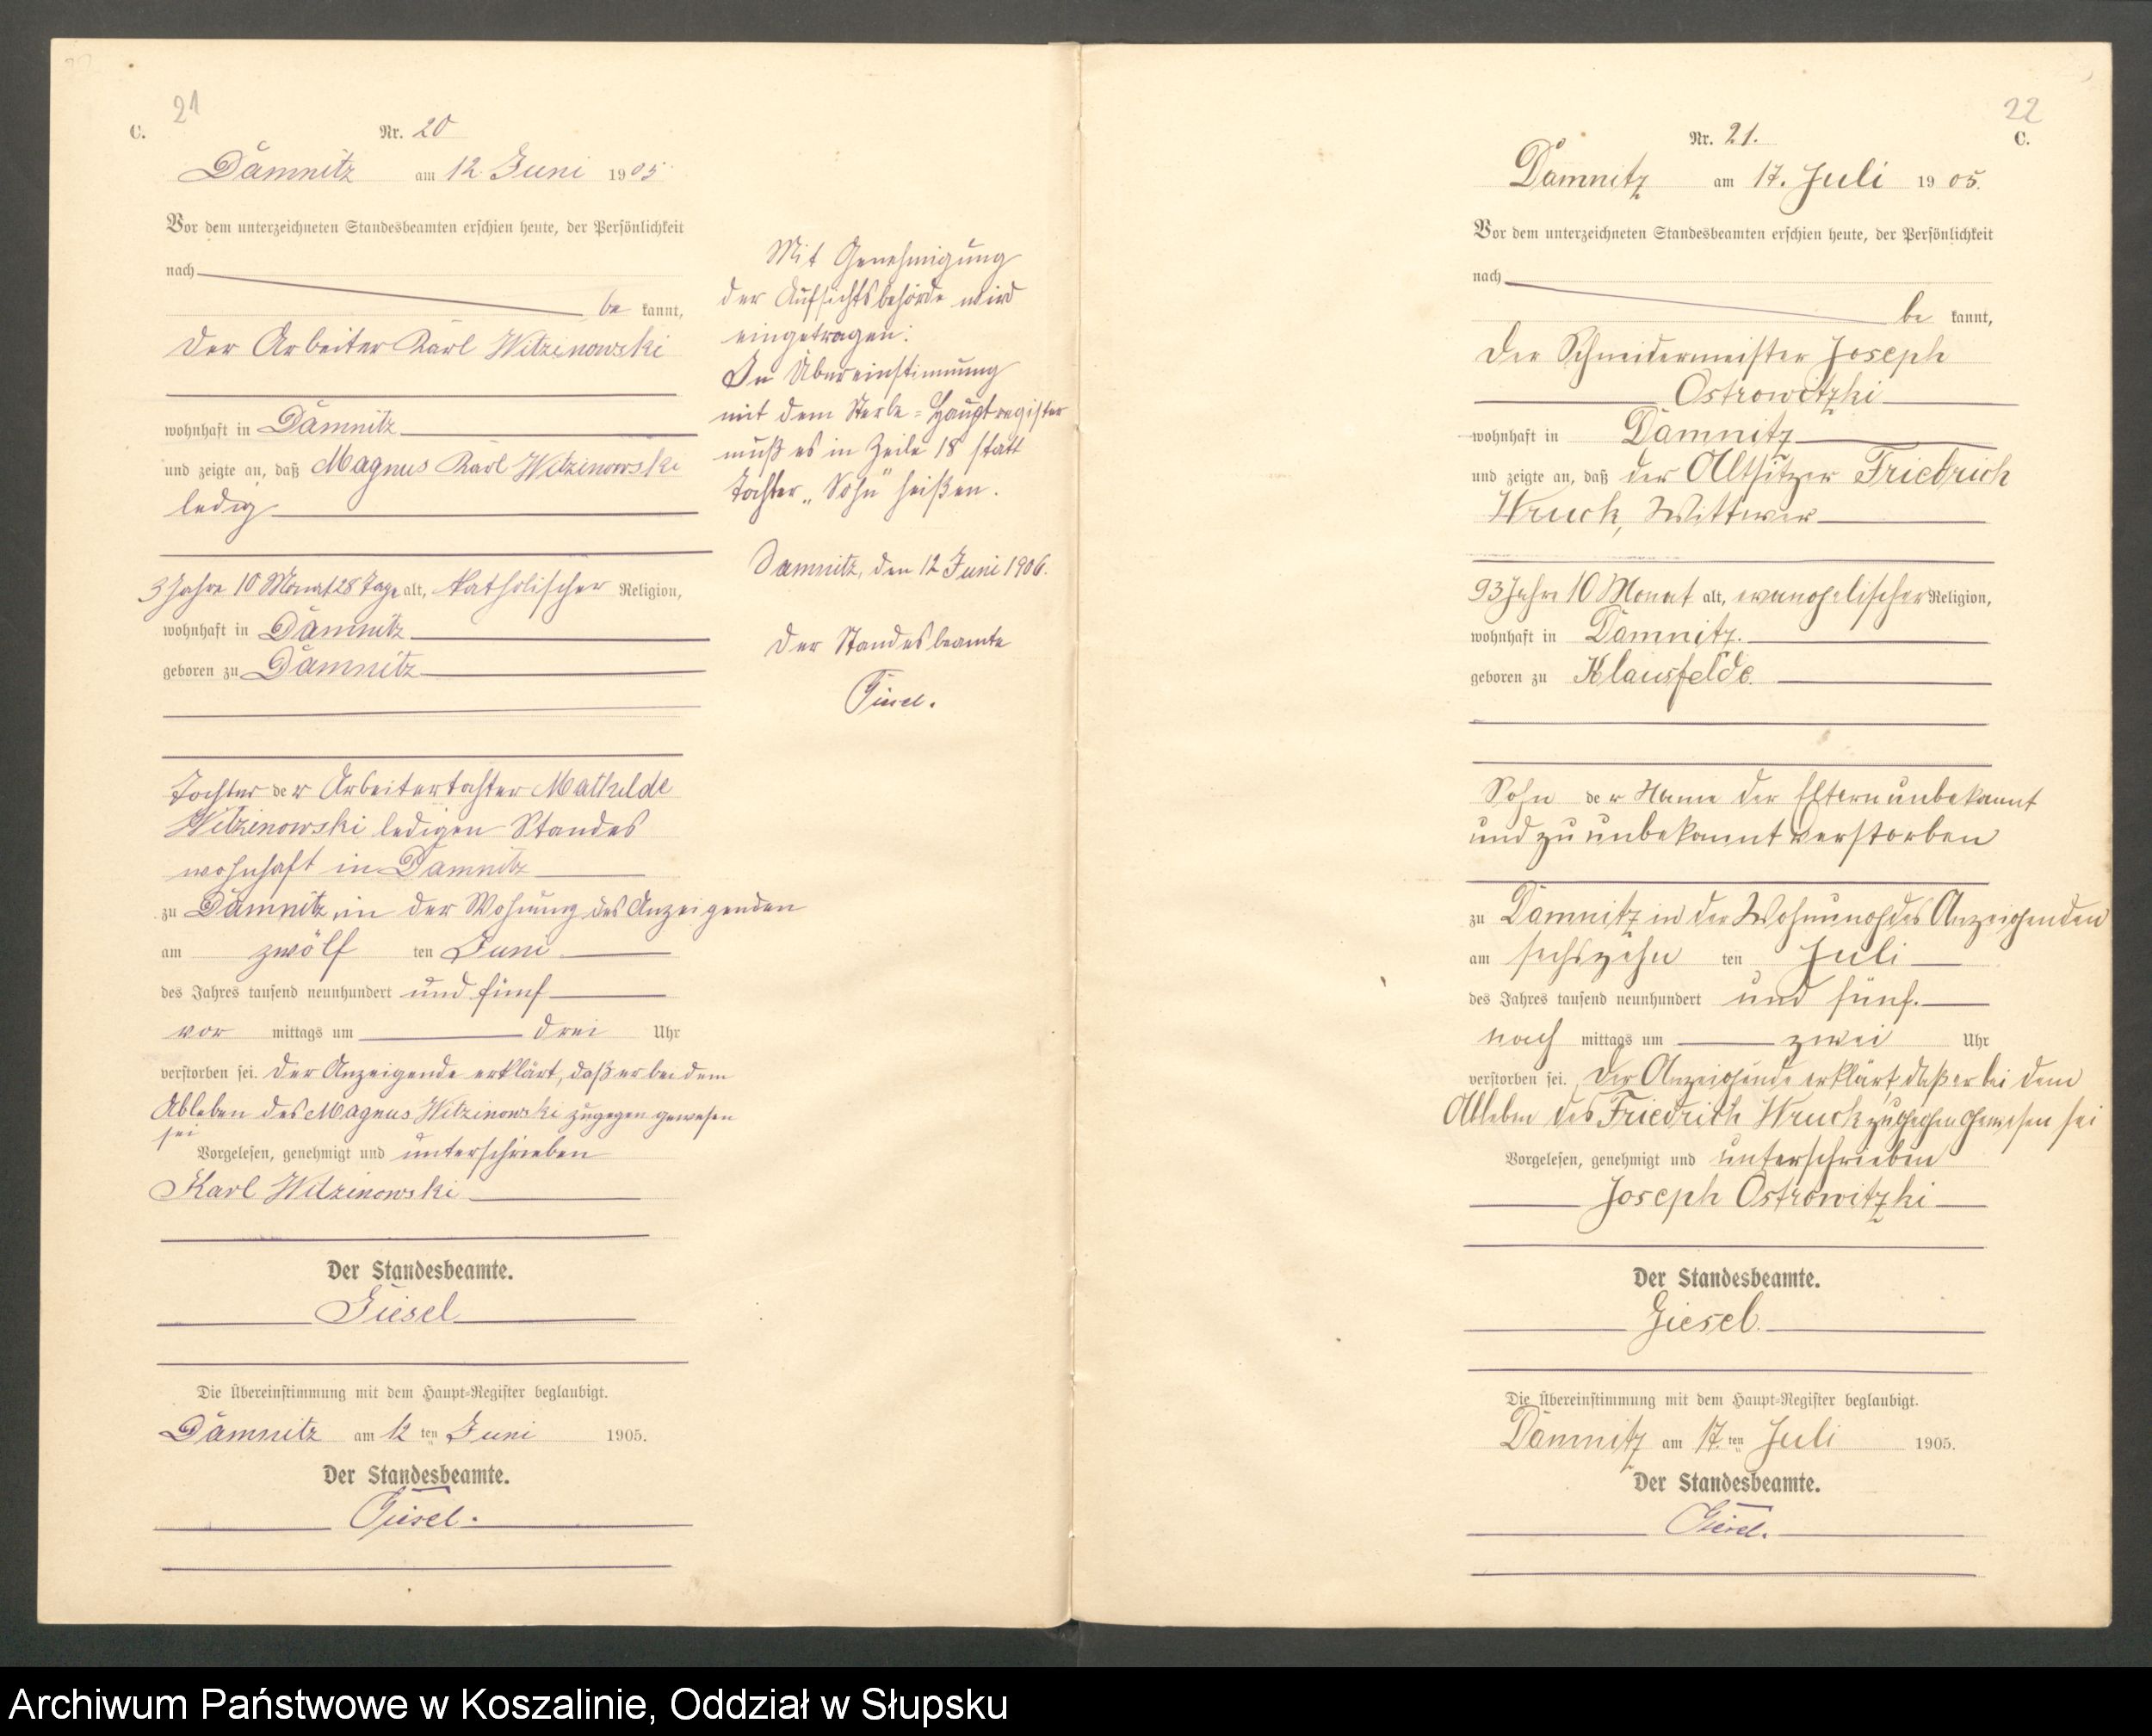 21
C.
Nr. 20
Damnitz am 12. Juni 1905
Vor dem unterzeichneten Standesbeamten erschien heute, der Persönlichkeit
nach
be kannt,
der Arbeiter Karl Witzinowski
wohnhaft in Damnitz
und zeigte an, daß Magnus Karl Witzinowski
ledig
3 Jahre 10 Monat 28 Tage alt, katholischer Religion,
wohnhaft in Damnitz
geboren zu Damnitz
Tochter der Arbeitertochter Mathilde
Witzinowski ledigen Standes
wohnhaft in Damnitz
zu Damnitz, in der Wohnung des Anzeigenden
am zwölf ten Juni
des Jahres tausend neunhundert und fünf
vor mittags um drei Uhr
verstorben sei. Der Anzeigende erklärt, daß er bei dem
Ableben des Magnus Witzinowski zugegen gewesen
sei
Vorgelesen, genehmigt und unterschrieben
Karl Witzinowski
Der Standesbeamte.
Giesel
Die Übereinstimmung mit dem Haupt-Register beglaubigt.
Damnitz am 12 ten Juni 1905.
Der Standesbeamte.
Giesel.
Mit Genehmigung
der Aufsichtsbehörde wird
eingetragen:
In Übereinstimmung
mit dem Sterbe-Hauptregister
muß es in Zeile 18 statt
Tochter „Sohn" heißen.
Damnitz, den 12 Juni 1906.
Der Standesbeamte
Giesel.
22
C.
Nr. 21.
Damnitz am 17. Juli 1905.
Vor dem unterzeichneten Standesbeamten erschien heute, der Persönlichkeit
nach
be kannt,
der Schneidermeister Joseph
Ostrowitzki
wohnhaft in Damnitz
und zeigte an, daß der Altsitzer Friedrich
Wruck, Wittwer
93 Jahre 10 Monat alt, evangelischer Religion,
wohnhaft in Damnitz.
geboren zu Klausfelde.
Sohn der Name der Eltern unbekannt
und zu unbekannt verstorben
zu Damnitz in der Wohnung des Anzeigenden
am sechszehn ten Juli
des Jahres tausend neunhundert und fünf.
nach mittags um zwei Uhr
verstorben sei. Der Anzeigende erklärt, daß er bei dem
Ableben des Friedrich Wruck zugegen gewesen sei
Vorgelesen, genehmigt und unterschrieben
Joseph Ostrowitzki
Der Standesbeamte.
Giesel.
Die Übereinstimmung mit dem Haupt-Register beglaubigt.
Damnitz am 17. ten Juli 1905.
Der Standesbeamte.
Giesel.
Archiwum Państwowe w Koszalinie, Oddział w Słupsku